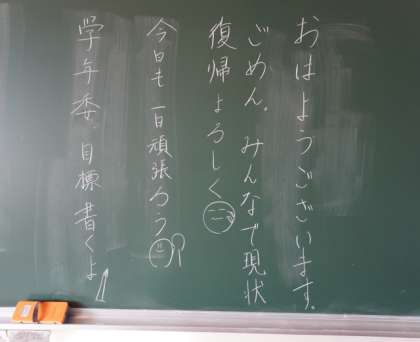 おはようございます。
ごめん。みんなで現状
復帰よろしく
今日も一日頑張ろう
学年委、目標書くよ